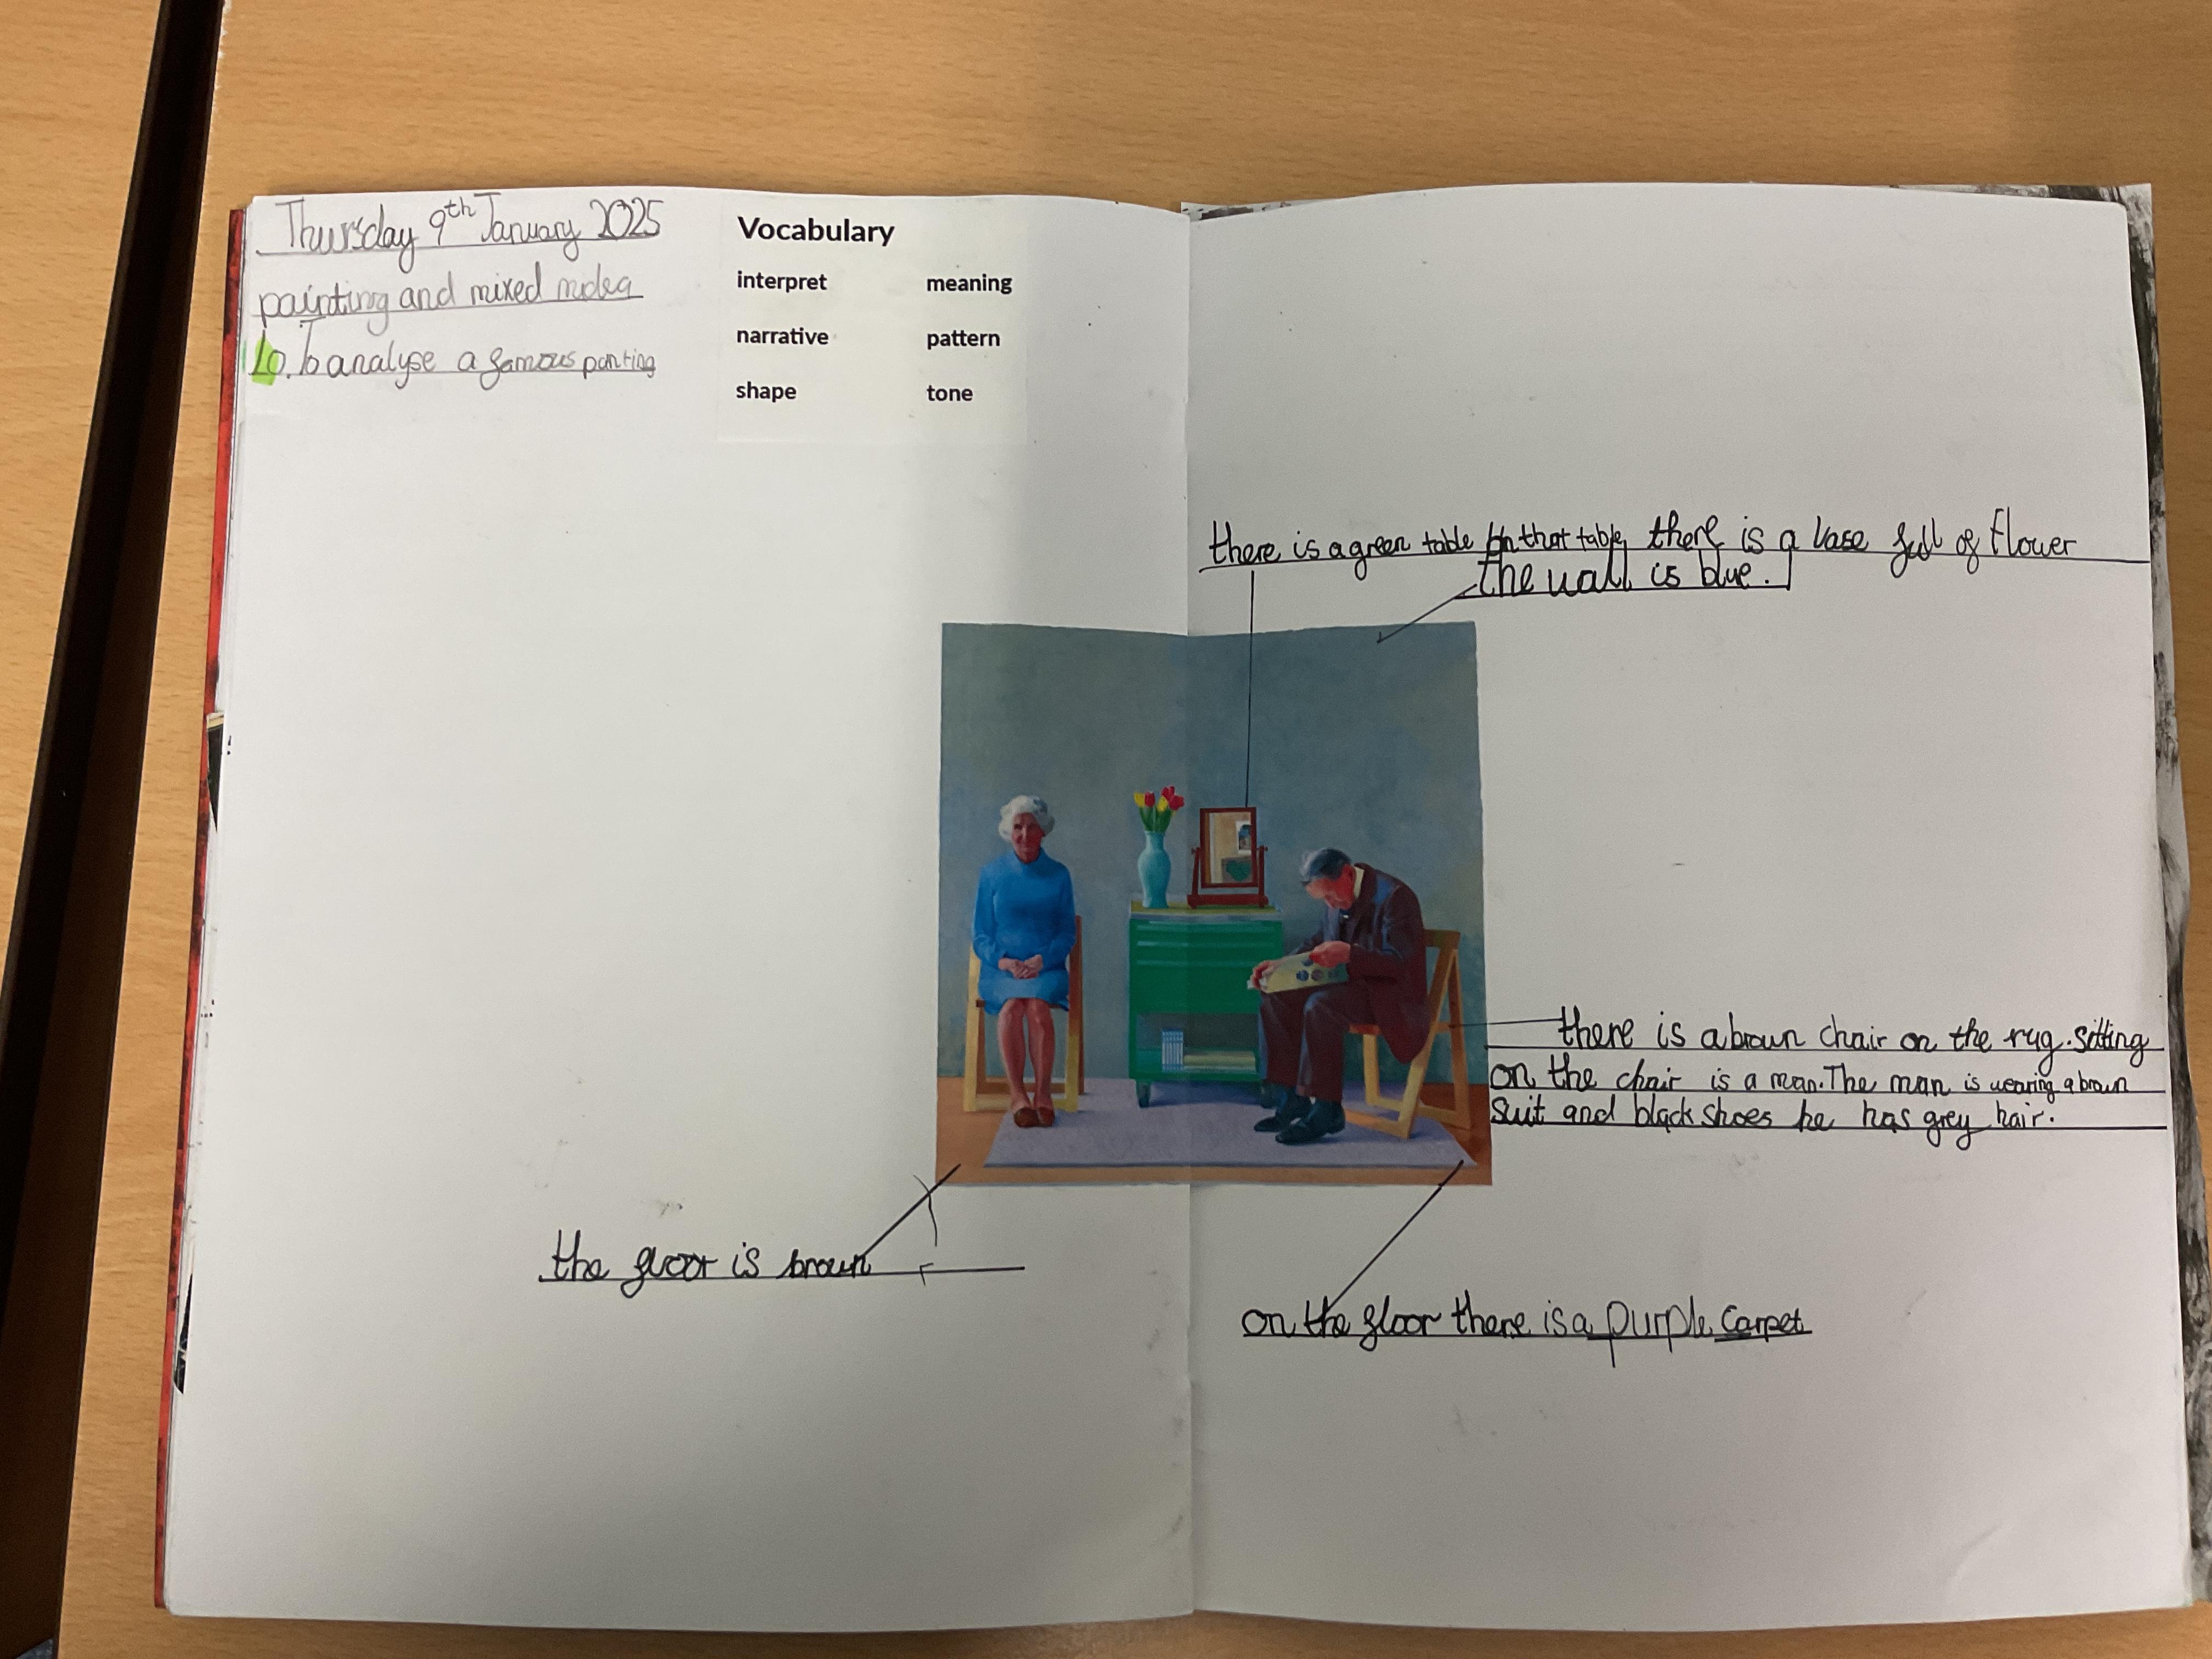 Thursday 9th January 2025
painting and mixed midea
Lo. To analyse a famous panting
Vocabulary
interpret meaning
narrative pattern
shape tone
there is a green table On that table there is a vase full of flower
The wall is blue.
there is a brown chair on the rug. Sitting
on the chair is a man. The man is wearing a brown
suit and black shoes he has grey hair.
the floor is brown
on the floor there is a purple carpet